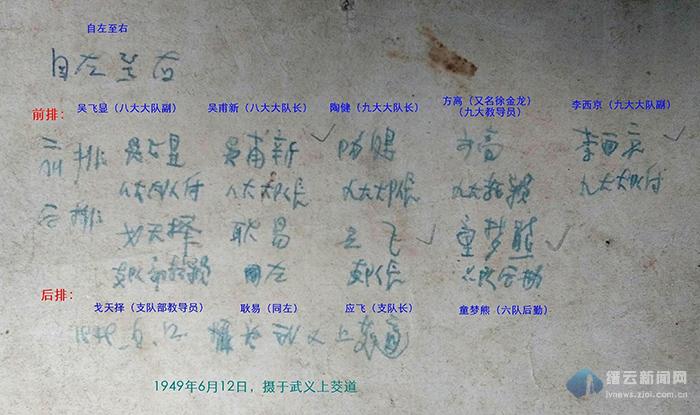 自左至右
自左至右
前排： 吴飞显（八大大队副） 吴甫新（八大大队长） 陶健（九大大队长） 方高（又名徐金龙）（九大教导员） 李西京（九大大队副）
前排 吴飞显 吴甫新 陶健 方高 李西京
八大大队付 八大大队长 九大大队长 九大教导员 九大大队付
后排 戈天择 耿易 应飞 童梦熊
支队部教导员 同左 支队长 六队后勤
后排： 戈天择（支队部教导员） 耿易（同左） 应飞（支队长） 童梦熊（六队后勤）
1949.6.12. 摄于武义上茭道
1949年6月12日，摄于武义上茭道
缙云新闻网
jynews.zjol.com.cn